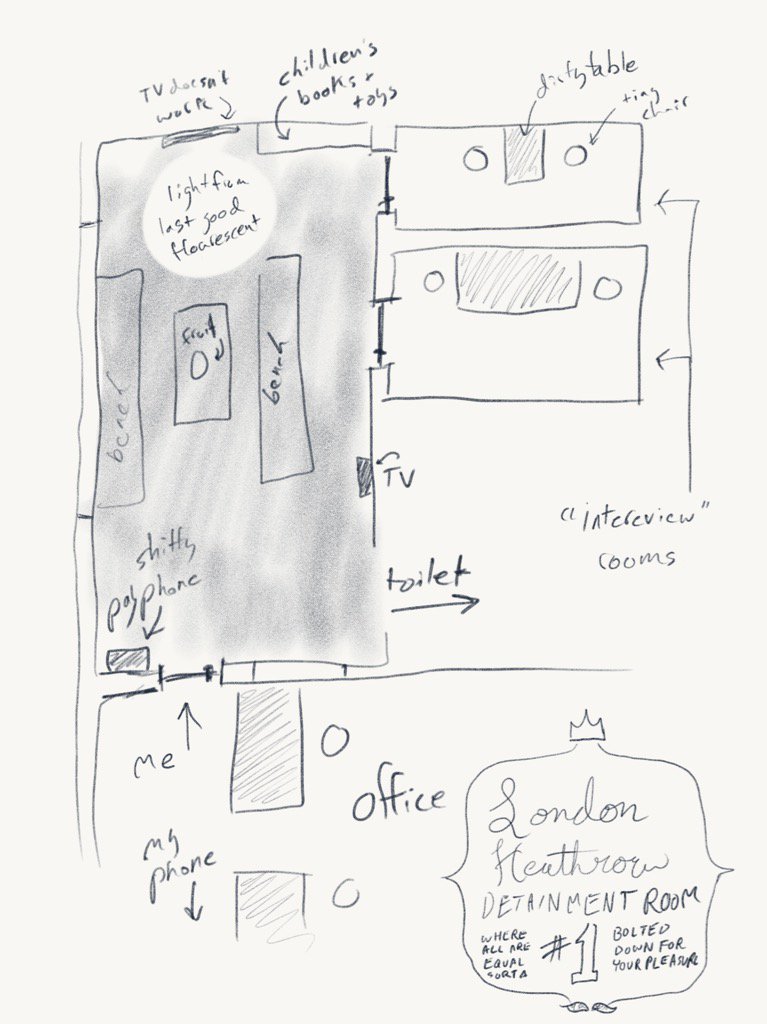 TV doesn't
work
children's
books +
toys
dirty table
tiny
chair
light from
last good
flourescent
fruit
bench
bench
TV
"intereview"
rooms
shitty
pay phone
toilet
me
office
my
phone
London
Heathrow
DETAINMENT ROOM
WHERE
ALL ARE
EQUAL
SORTA
#1
BOLTED
DOWN FOR
YOUR PLEASURE